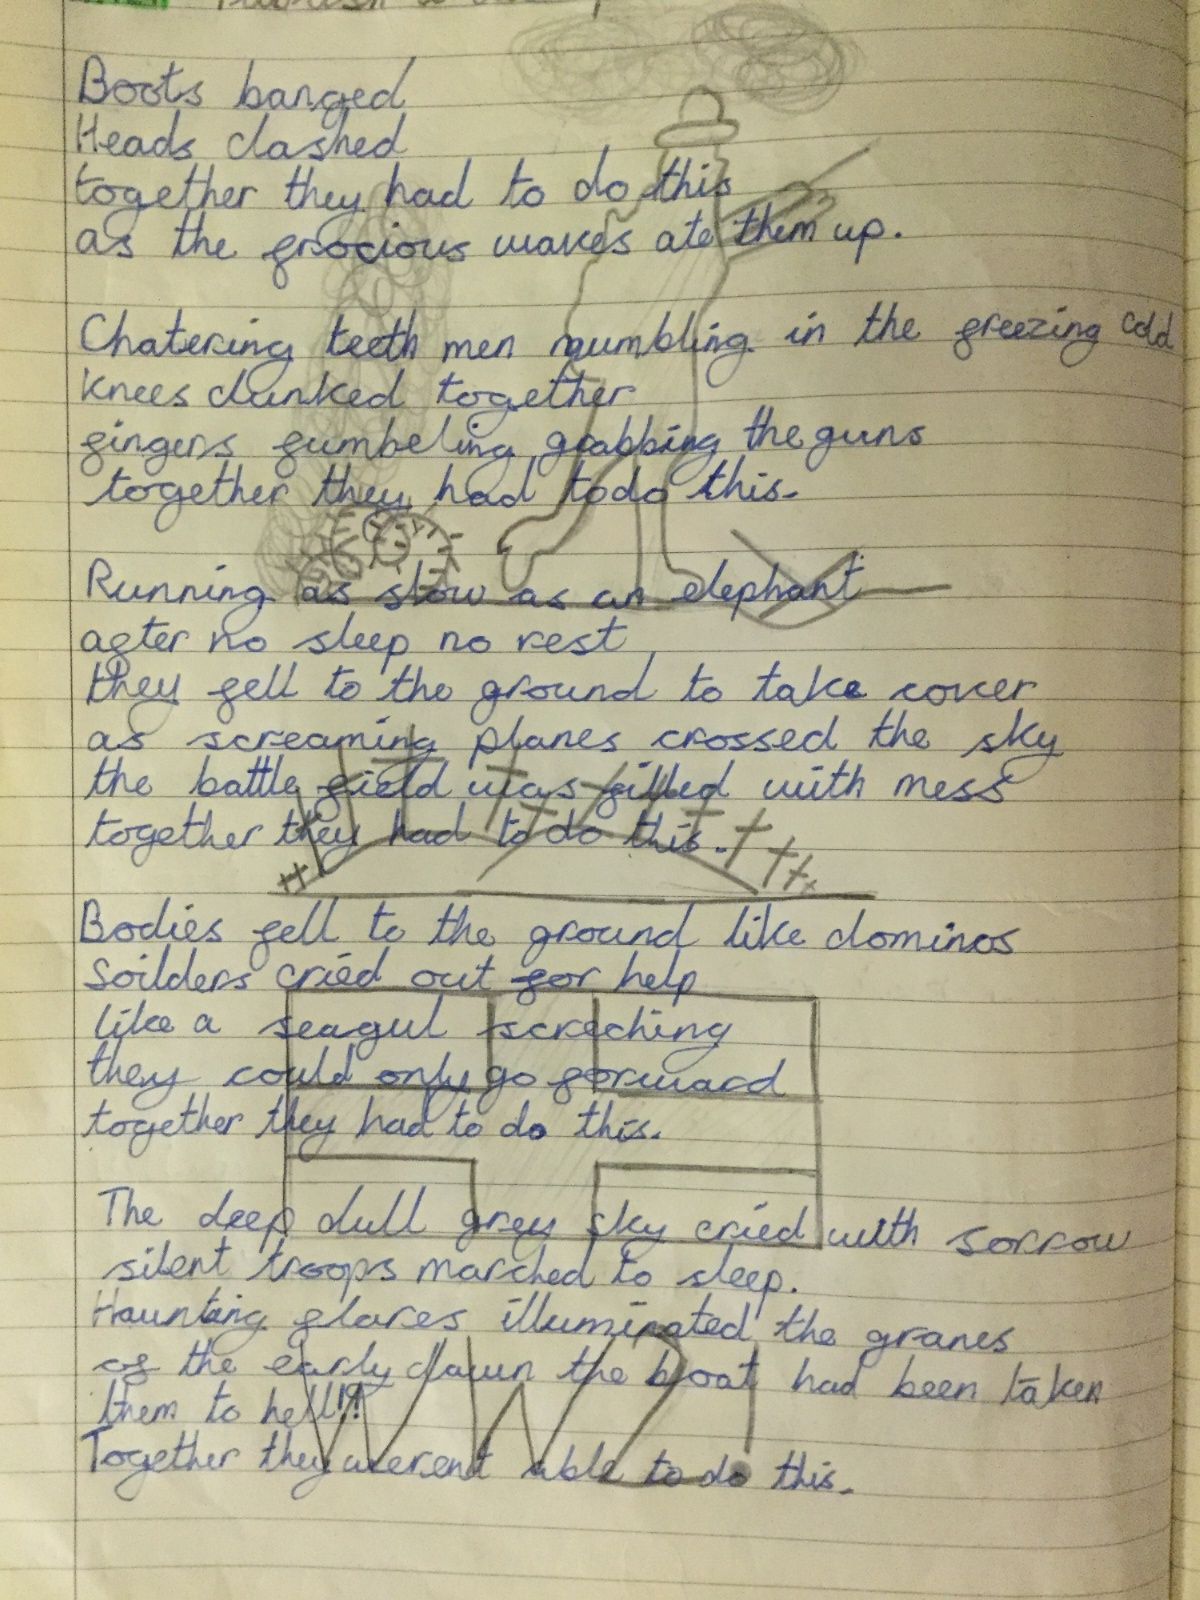 Boots banged
Heads clashed
together they had to do this
as the frocious waves ate them up.
Chatering teeth men mumbling in the freezing cold
Knees clunked together
fingers fumbeling grabbing the guns
together they had to do this.
Running as slow as an elephant
after no sleep no rest
they fell to the ground to take cover
as screaming planes crossed the sky
the battle field was filled with mess
together they had to do this.
Bodies fell to the ground like dominos
Soilders cried out for help
like a seagul screching
they could only go forward
together they had to do this.
The deep dull grey sky cried with sorrow
silent troops marched to sleep.
Haunting flares illuminated the graves
of the early dawn the boat had been taken
them to hell!?!
Together they werent able to do this.
WW2